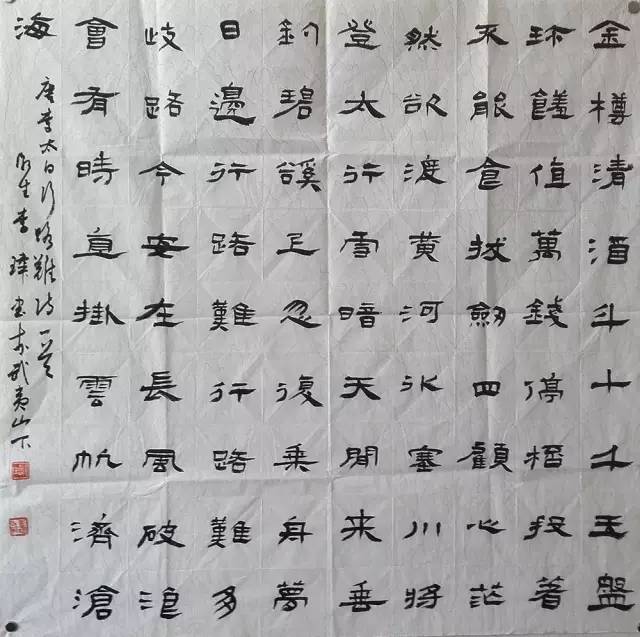 金樽清酒斗十千玉盤
珎饈值萬錢停桮投著
不能食拔劒四顧心茫
然欲渡黄河冰塞川將
登太行雪暗天閒来垂
釣碧谿上忽復乗舟夢
日邊行路難行路難多
岐路今安在長風破浪
會有時直掛雲帆濟滄
海
唐李太白行路難詩一首
生李書於武夷山下